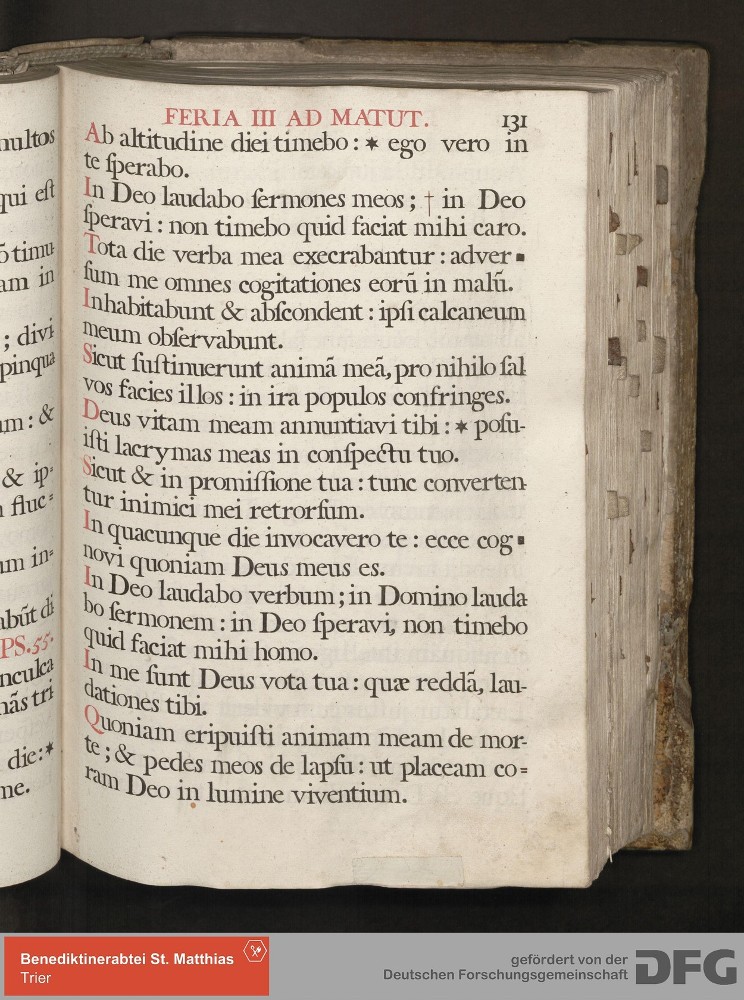 multos
qui eſt
õ timu
am in
; divi
pinqua
am : &
& ip⸗
fluc⸗
um in⸗
abūt di
PS.55.
nculca
nās tri
die:*
me.
FERIA III AD MATUT. 131
Ab altitudine diei timebo : * ego vero in
te ſperabo.
In Deo laudabo ſermones meos ; † in Deo
ſperavi : non timebo quid faciat mihi caro.
Tota die verba mea execrabantur : adver ▪
ſum me omnes cogitationes eorū in malū.
Inhabitabunt & abſcondent : ipſi calcaneum
meum obſervabunt.
Sicut ſuſtinuerunt animā meā, pro nihilo ſal
vos facies illos : in ira populos confringes.
Deus vitam meam annuntiavi tibi : * poſu-
iſti lacrymas meas in conſpectu tuo.
Sicut & in promiſſione tua : tunc converten-
tur inimici mei retrorſum.
In quacunque die invocavero te : ecce cog ▪
novi quoniam Deus meus es.
In Deo laudabo verbum ; in Domino lauda
bo ſermonem : in Deo ſperavi, non timebo
quid faciat mihi homo.
In me ſunt Deus vota tua : quæ reddā, lau-
dationes tibi.
Quoniam eripuiſti animam meam de mor-
te ; & pedes meos de lapſu : ut placeam co⸗
ram Deo in lumine viventium.
Benediktinerabtei St. Matthias
Trier
gefördert von der
Deutschen Forschungsgemeinschaft
DFG